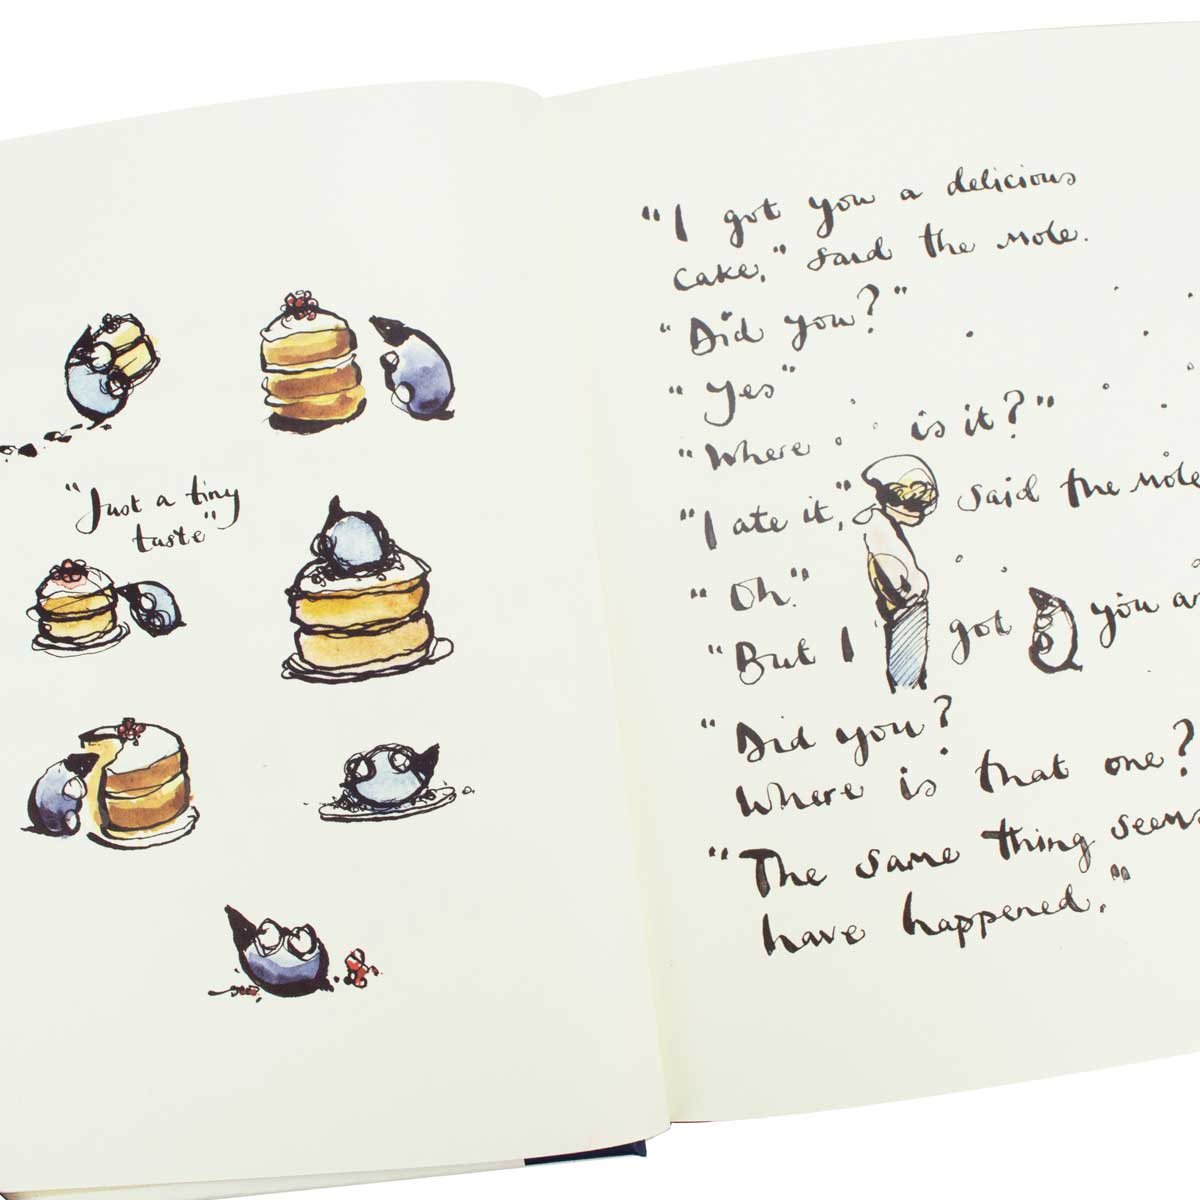 "Just a tiny
taste"
"I got you a delicious
cake," said the mole.
"Did you?"
"Yes"
"Where is it?"
"I ate it," said the mole
"Oh."
"But I got you an
"Did you?
Where is that one?
"The same thing seems
have happened."